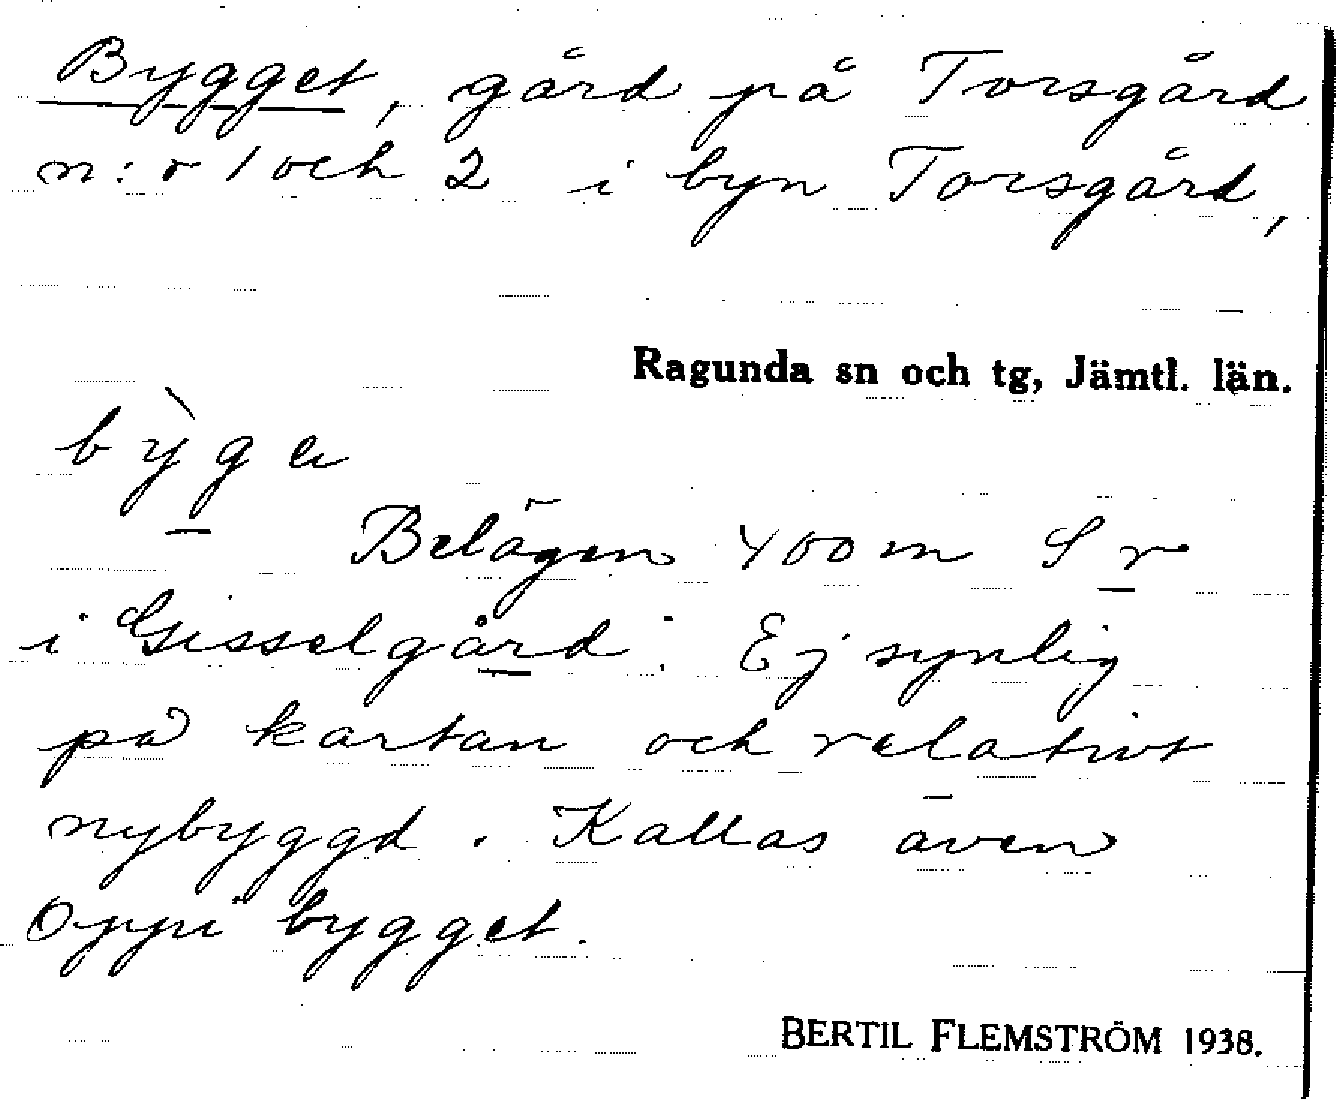 Bygget, gård på Torsgård
n:r 1 och 2 i byn Torsgård,
Ragunda sn och tg, Jämtl. län.
bỳga
Belägen 400 m S r
i Gisselgård. Ej synlig
på kartan och relativt
nybyggd. Kallas även
Oppi bygget.
BERTIL FLEMSTRÖM 1938.